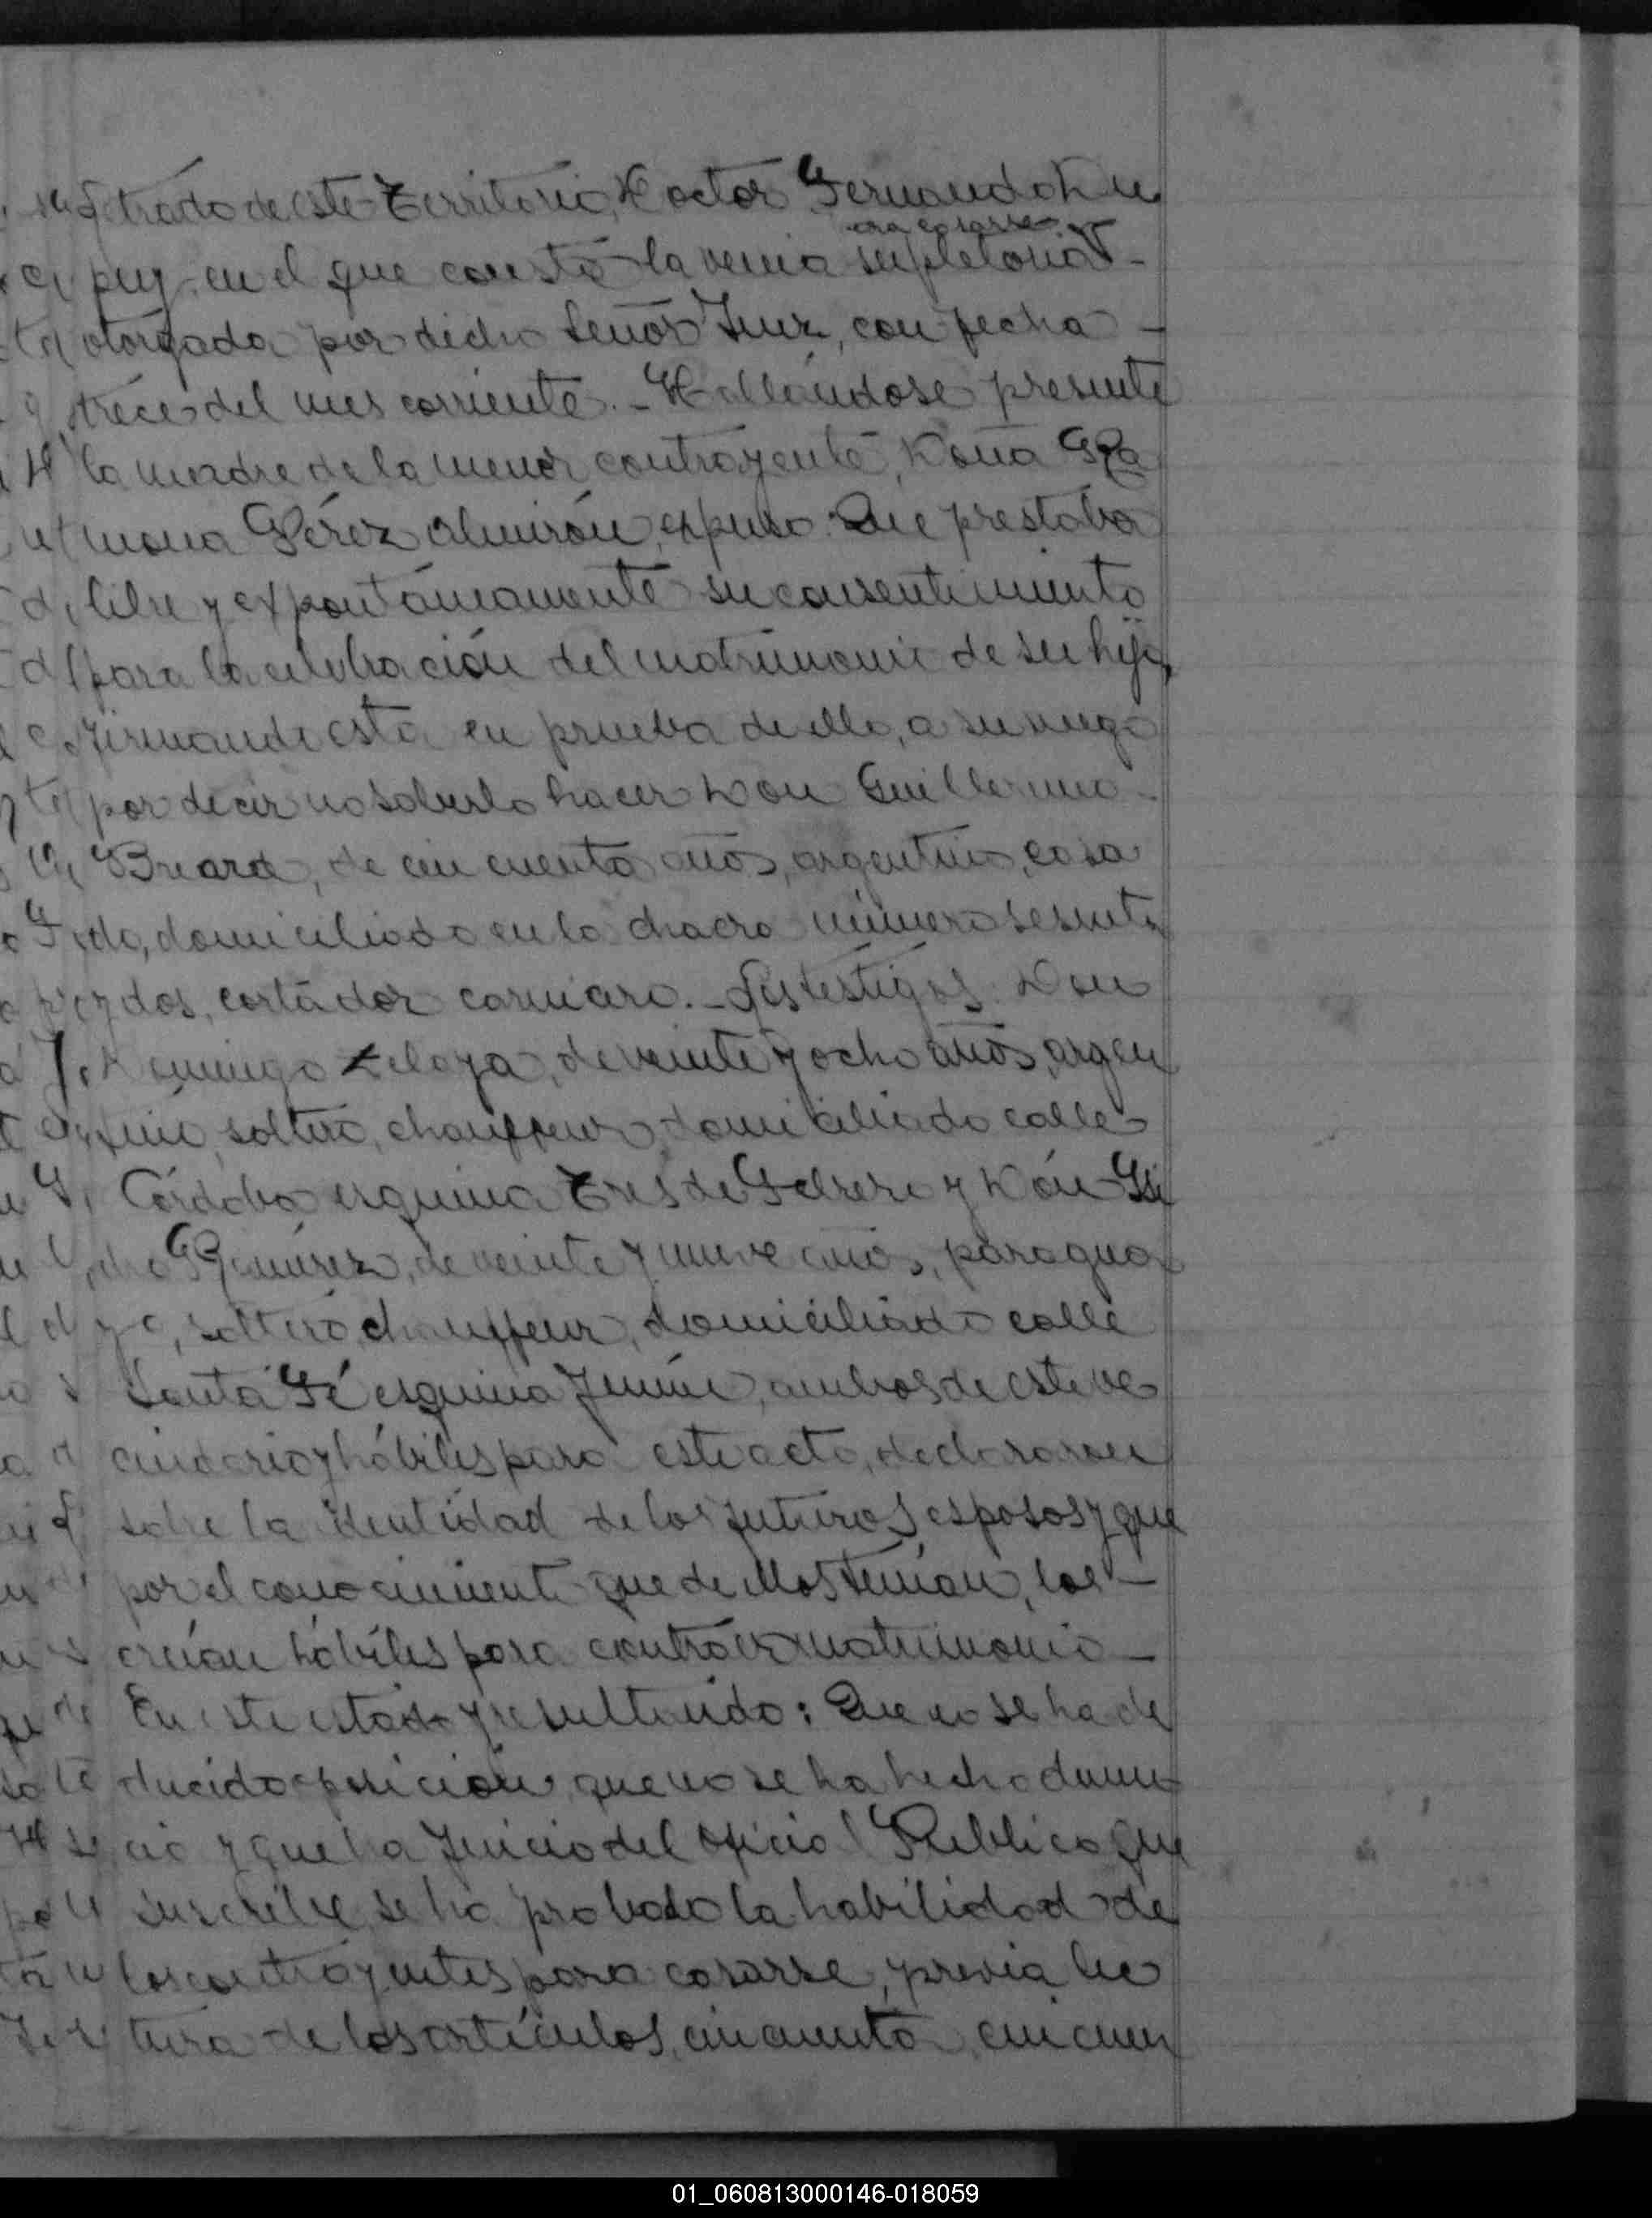 Letrado de este Territorio, Doctor Fernando Du
puy, en el que consta la venia supletoria
para casarse
otorgada por dicho Señor Juez, con fecha
trece del mes corriente. - Hallándose presente
la madre de la menor contrayente, Doña Ra
mona Pérez Almirón, expuso: Que prestaba
libre y expontáneamente su consentimiento
para la celebración del matrimonio de su hija,
firmando esta en prueba de ello, a su ruego
por decir no saberlo hacer Don Guillermo
Breard, de cincuenta años, argentino, casa
do, domiciliado en la chacra número sesenta
y dos, cortador carnicero. - Los testigos: Don
Domingo Zelaya, de veinte y ocho años, argen
tino, soltero, chauffeur, domiciliado calle
Córdoba esquina Tres de Febrero y Don Isi
dro Ramírez, de veinte y nueve años, paragua
yo, soltero, chauffeur, domiciliado calle
Santa Fé esquina Junín, ambos de este ve
cindario y hábiles para este acto, declararon
sobre la identidad de los futuros esposos y que
por el conocimiento que de ellos tenían, los -
creían hábiles para contraer matrimonio -
En este estado y resultando: Que no se ha de
ducido oposición, que no se ha hecho denun
cia y que a juicio del Oficial Público que
suscribe se ha probado la habilidad de
los contrayentes para casarse, previa lec
tura de los artículos, cincuenta, cincuen
01_060813000146-018059